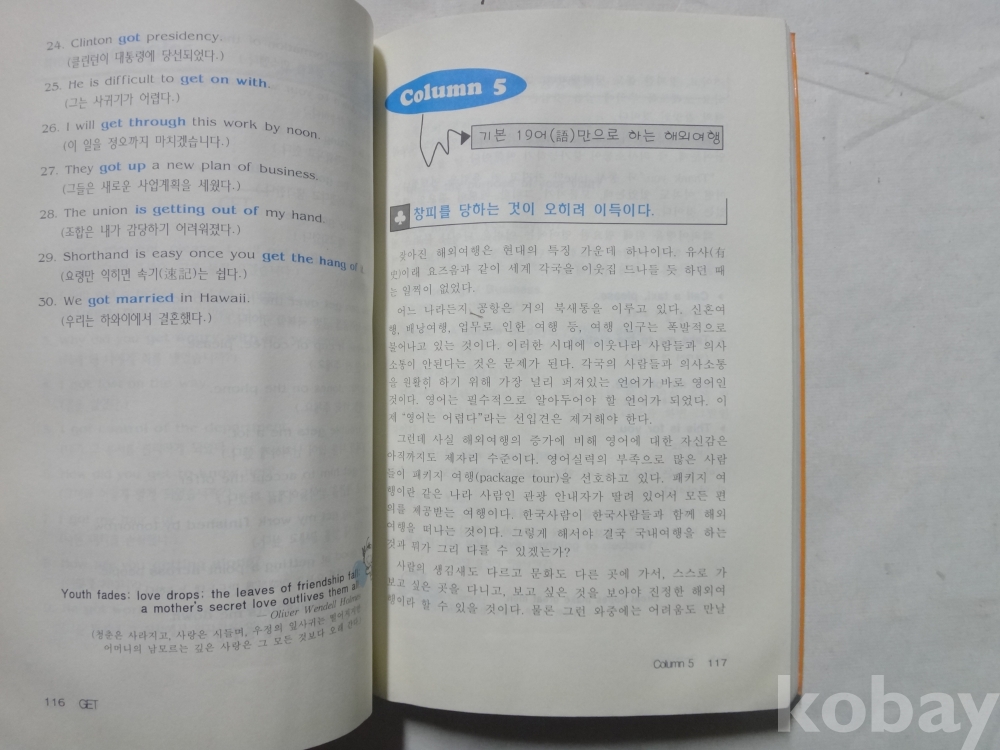 24. Clinton got presidency.
(클린턴이 대통령에 당선되었다.)
25. He is difficult to get on with.
(그는 사귀기가 어렵다.)
26. I will get through this work by noon.
(이 일을 정오까지 마치겠습니다.)
27. They got up a new plan of business.
(그들은 새로운 사업계획을 세웠다.)
28. The union is getting out of my hand.
(조합은 내가 감당하기 어려워졌다.)
29. Shorthand is easy once you get the hang of
(요령만 익히면 속기(速記)는 쉽다.)
30. We got married in Hawaii.
(우리는 하와이에서 결혼했다.)
Youth fades: love drops: the leaves of friendship fall
a mother's secret love outlives them all
— Oliver Wendell Holmes
(청춘은 사라지고, 사랑은 시들며, 우정의 잎사귀는 떨어지지만
어머니의 남모르는 깊은 사랑은 그 모든 것보다 오래 간다)
116 GET
Column 5
기본 19어(語)만으로 하는 해외여행
♣ 창피를 당하는 것이 오히려 이득이다.
잦아진 해외여행은 현대의 특징 가운데 하나이다. 유사(有
史)이래 요즈음과 같이 세계 각국을 이웃집 드나들 듯 하던 때
는 일찍이 없었다.
어느 나라든지 공항은 거의 북새통을 이루고 있다. 신혼여
행, 배낭여행, 업무로 인한 여행 등, 여행 인구는 폭발적으로
불어나고 있는 것이다. 이러한 시대에 이웃나라 사람들과 의사
소통이 안된다는 것은 문제가 된다. 각국의 사람들과 의사소통
을 원활히 하기 위해 가장 널리 퍼져있는 언어가 바로 영어인
것이다. 영어는 필수적으로 알아두어야 할 언어가 되었다. 이
제 "영어는 어렵다"라는 선입견은 제거해야 한다.
그런데 사실 해외여행의 증가에 비해 영어에 대한 자신감은
아직까지도 제자리 수준이다. 영어실력의 부족으로 많은 사람
들이 패키지 여행(package tour)을 선호하고 있다. 패키지 여
행이란 같은 나라 사람인 관광 안내자가 딸려 있어서 모든 편
의를 제공받는 여행이다. 한국사람이 한국사람들과 함께 해외
여행을 떠나는 것이다. 그렇게 해서야 결국 국내여행을 하는
것과 뭐가 그리 다를 수 있겠는가?
사람의 생김새도 다르고 문화도 다른 곳에 가서, 스스로 가
보고 싶은 곳을 다니고, 보고 싶은 것을 보아야 진정한 해외여
행이라 할 수 있을 것이다. 물론 그런 와중에는 어려움도 만날
Column 5 117
kobay